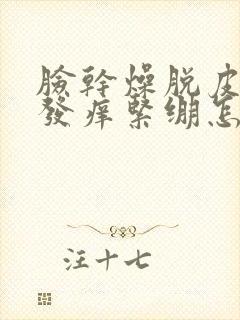 臉幹燥脱皮
發痒緊繃怎
汪十七